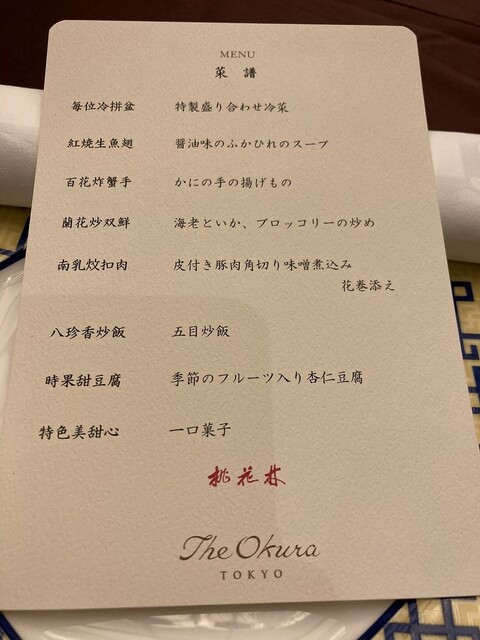 MENU
菜譜
毎位冷拼盆 特製盛り合わせ冷菜
紅焼生魚翅 醤油味のふかひれのスープ
百花炸蟹手 かにの手の揚げもの
蘭花炒双鮮 海老といか、ブロッコリーの炒め
南乳炆扣肉 皮付き豚肉角切り味噌煮込み
花巻添え
八珍香炒飯 五目炒飯
時果甜豆腐 季節のフルーツ入り杏仁豆腐
特色美甜心 一口菓子
桃花林
The Okura
TOKYO